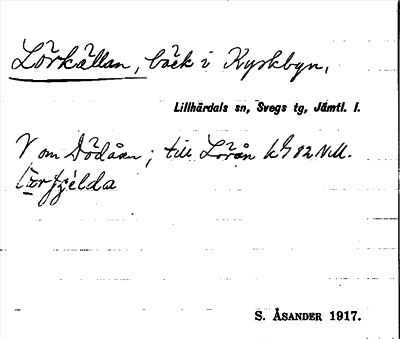 Lörkällan, bäck i Kyrkbyn,
Lillhärdals sn, Svegs tg, Jämtl. l.
V om Dödåan; till Lörån
Lörfjélda
S. ÅSANDER 1917.